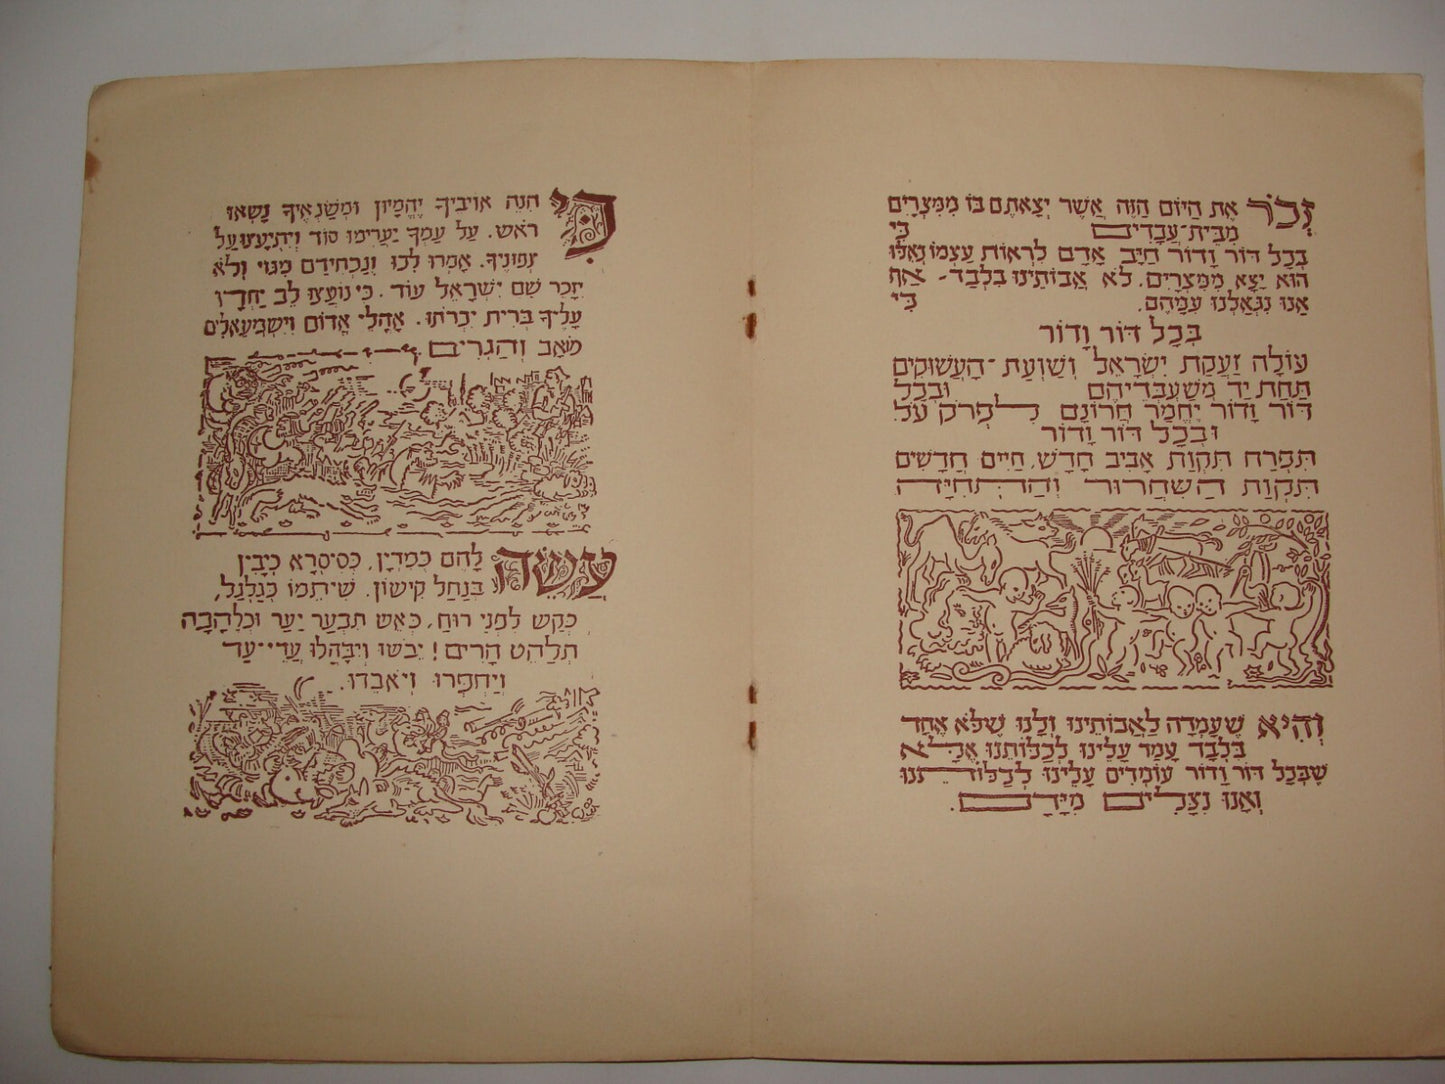 זְכֹר אֶת הַיּוֹם הַזֶּה אֲשֶׁר יְצָאתֶם בּוֹ מִמִּצְרַיִם
מִבֵּית־עֲבָדִים כִּי
בְּכָל דּוֹר וָדוֹר חַיָּב אָדָם לִרְאוֹת עַצְמוֹ כְּאִלּוּ
הוּא יָצָא מִמִּצְרַיִם. לֹא אֲבוֹתֵינוּ בִּלְבַד־ אַף
אָנוּ נִגְאַלְנוּ עִמָּהֶם. כִּי
בְּכָל דּוֹר וָדוֹר
עוֹלָה זַעֲקַת יִשְׂרָאֵל וְשַׁוְעַת־הָעֲשׁוּקִים
תַּחַת יַד מְשַׁעְבְּדֵיהֶם וּבְכָל
דּוֹר וָדוֹר יֶחְמַר חֲרוֹנָם לִפְרֹק עֹל
וּבְכָל דּוֹר וָדוֹר
תִּפְרַח תִּקְוַת אָבִיב חָדָשׁ, חַיִּים חֲדָשִׁים
תִּקְוַת הַשִּׁחְרוּר וְהַתְּחִיָּה
וְהִיא שֶׁעָמְדָה לַאֲבוֹתֵינוּ וְלָנוּ שֶׁלֹּא אֶחָד
בִּלְבָד עָמַד עָלֵינוּ לְכַלּוֹתֵנוּ אֶלָּא
שֶׁבְּכָל דּוֹר וָדוֹר עוֹמְדִים עָלֵינוּ לְכַלּוֹתֵנוּ
וְאָנוּ נִצָּלִים מִיָּדָם.
כִּי הִנֵּה אוֹיְבֶיךָ יֶהֱמָיוּן וּמְשַׂנְאֶיךָ נָשְׂאוּ
רֹאשׁ. עַל עַמְּךָ יַעֲרִימוּ סוֹד וְיִתְיָעֲצוּ עַל
צְפוּנֶיךָ. אָמְרוּ לְכוּ וְנַכְחִידֵם מִגּוֹי וְלֹא
יִזָּכֵר שֵׁם יִשְׂרָאֵל עוֹד. כִּי נוֹעֲצוּ לֵב יַחְדָּו
עָלֶיךָ בְּרִית יִכְרֹתוּ. אָהֳלֵי אֱדוֹם וְיִשְׁמְעֵאלִים
מוֹאָב וְהַגְרִים
עֲשֵׂה לָהֶם כְּמִדְיָן, כְּסִיסְרָא כְיָבִין
בְּנַחַל קִישׁוֹן. שִׁיתֵמוֹ כַּגַּלְגַּל,
כְּקַשׁ לִפְנֵי רוּחַ, כְּאֵשׁ תִּבְעַר יַעַר וּכְלֶהָבָה
תְּלַהֵט הָרִים! יֵבֹשׁוּ וְיִבָּהֲלוּ עֲדֵי־עַד
וְיַחְפְּרוּ וְיֹאבֵדוּ.